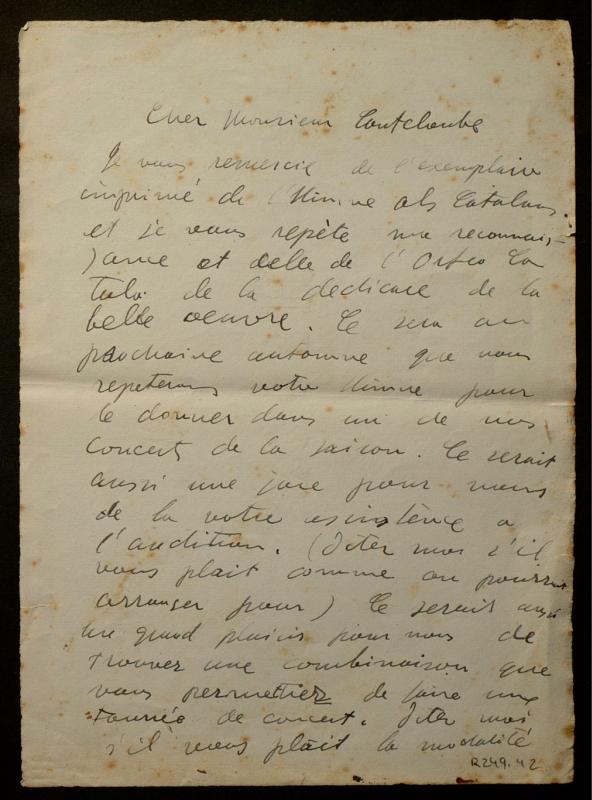 Cher Monsieur
Je vous remercie de l'exemplaire
imprimé de l'Himne als Catalans
et je vous repète ma reconnais-
sance et celle de l'Orfeo Ca
talà de la dedicace de la
belle oeuvre. Ce sera au
prochaine automne que nous
repeterons votre Himne pour
le donner dans un de nos
concerts de la saison. Ce serait
aussi une joie pour nous
de la votre asistènce a
l'audition. (Diter moi s'il
vous plait comme on pourrait
arranger pour) Ce serait aussi
un grand plaisir pour nous de
trouver une combinaison que
vous permetiez de faire une
tournée de concert. Diter moi
s'il vous plait la modalité
R249.42